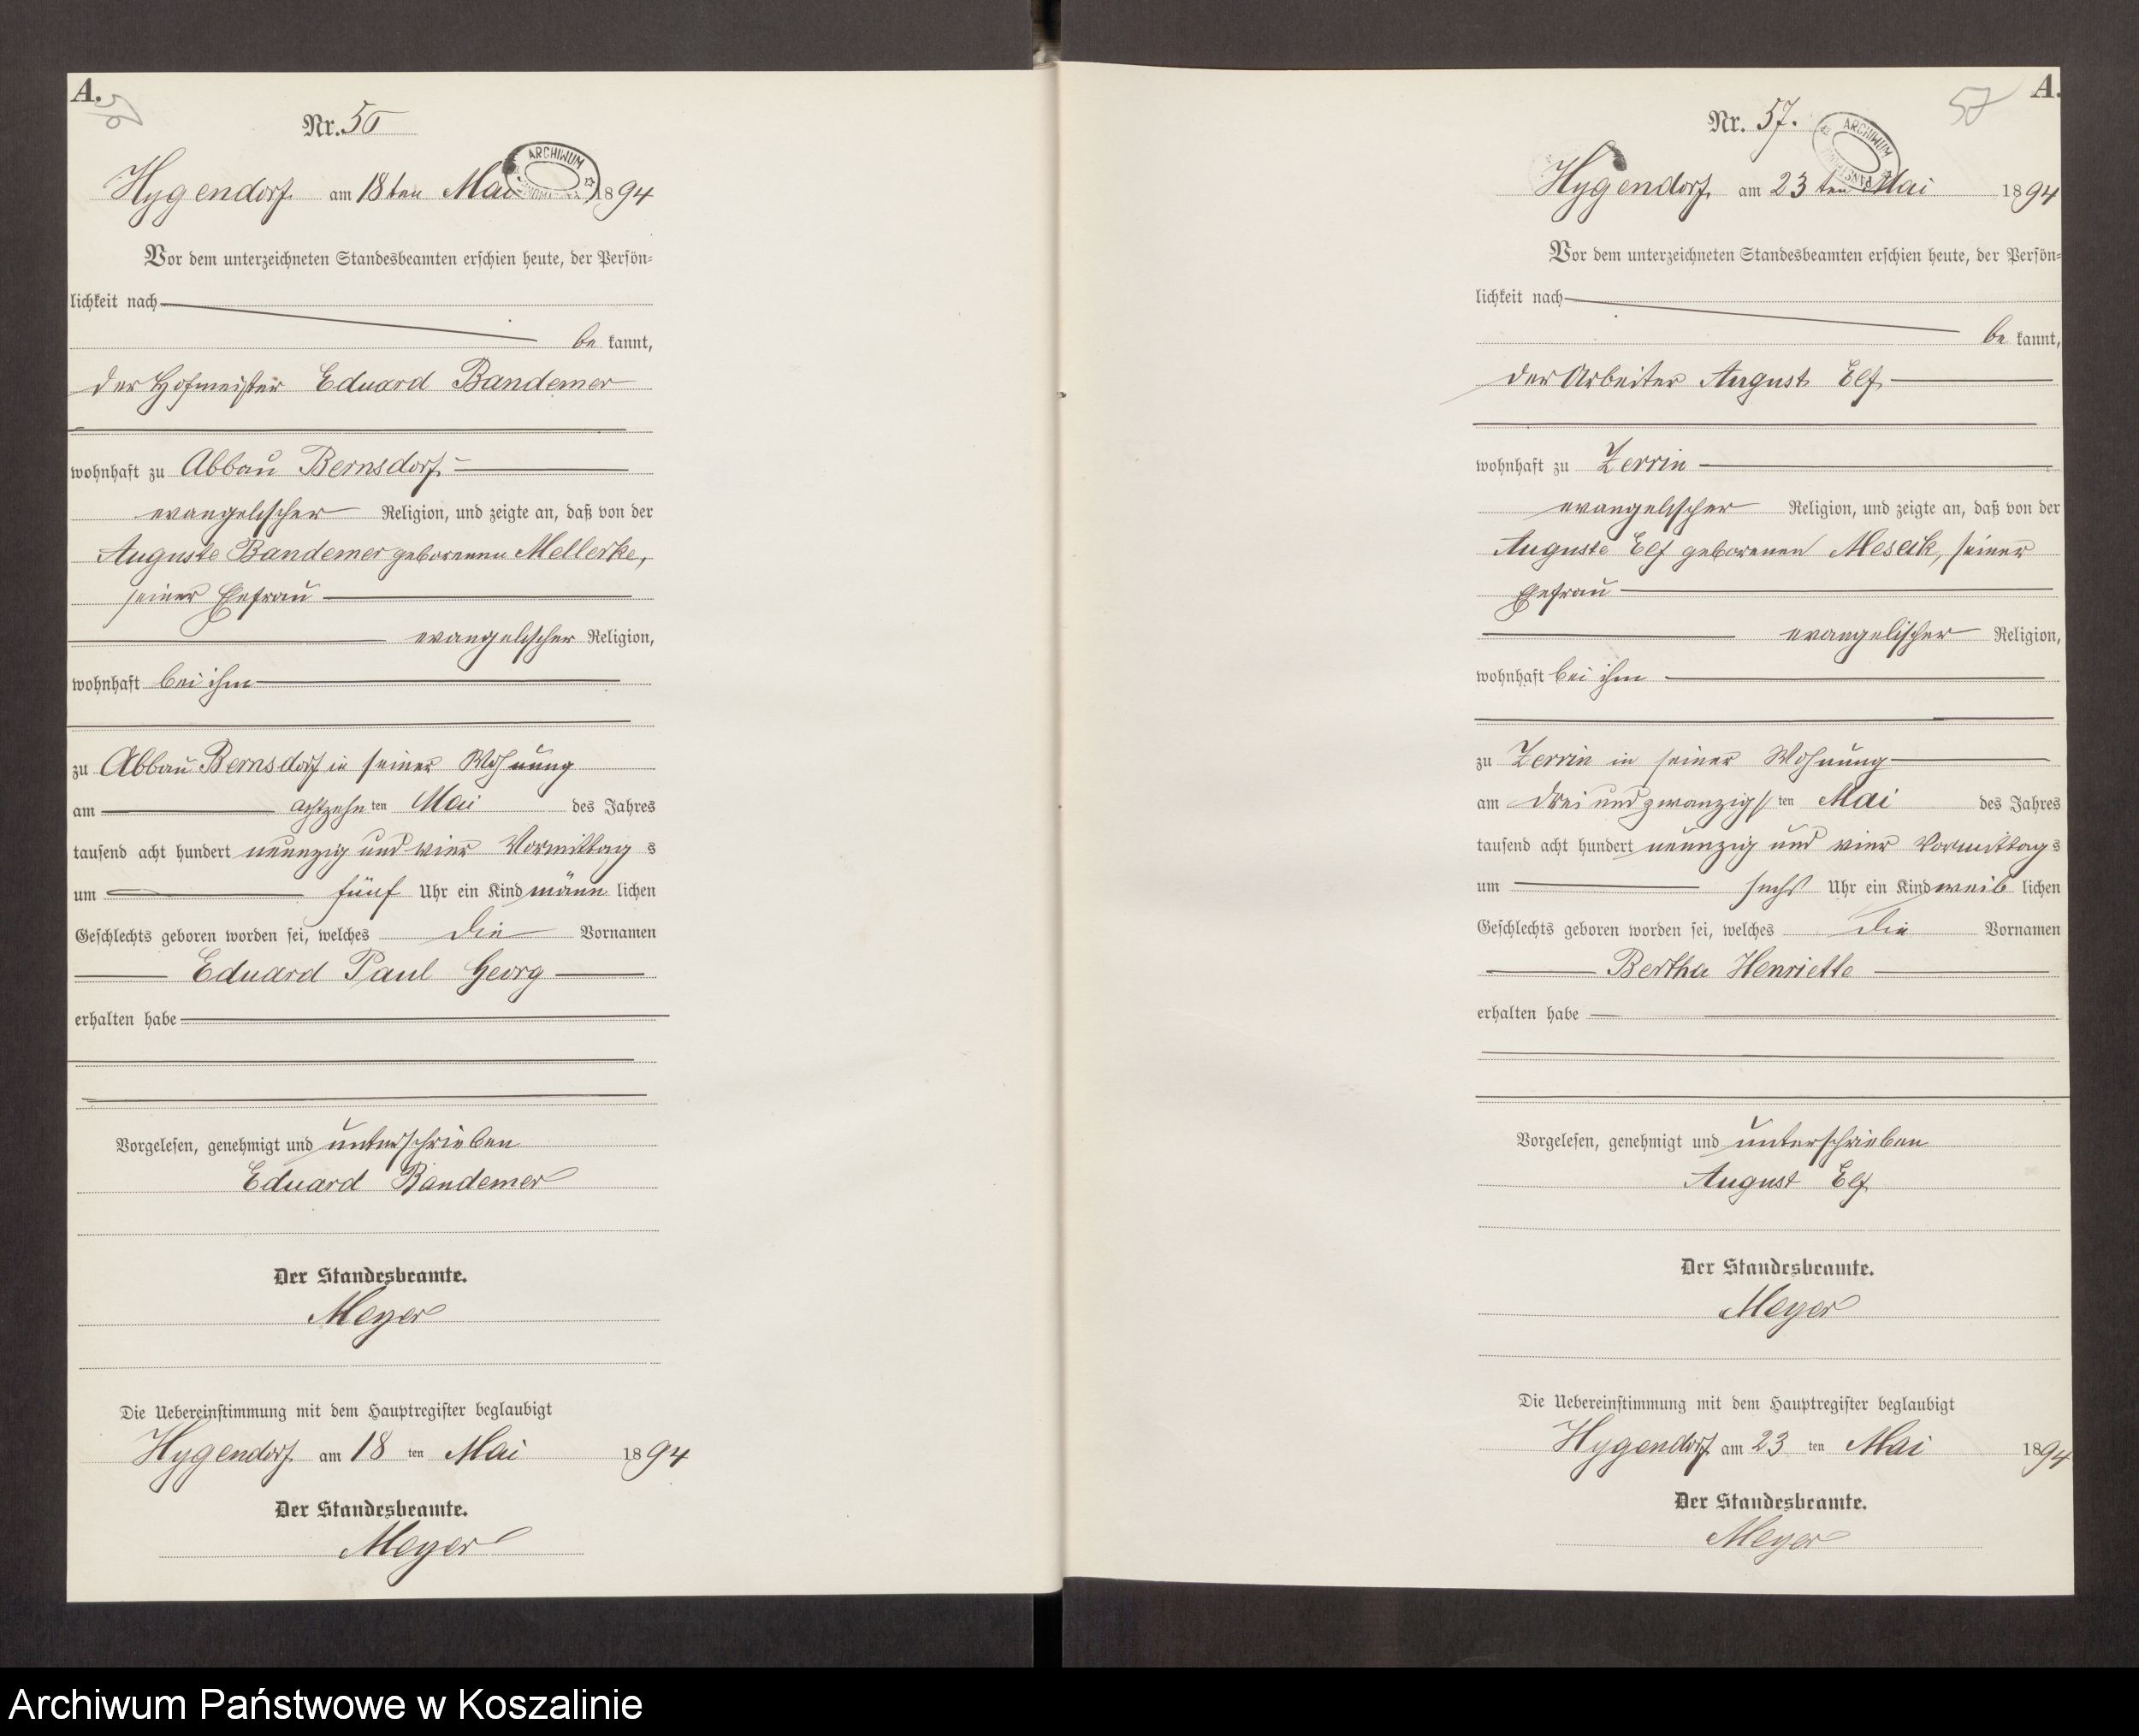 A.
Nr. 56
Hygendorf am 18ten Mai 1894
Vor dem unterzeichneten Standesbeamten erschien heute, der Persön-
lichkeit nach
be kannt,
der Hofmeister Eduard Bandemer
wohnhaft zu Abbau Bernsdorf
evangelischer Religion, und zeigte an, daß von der
Auguste Bandemer geborenen Mellerke,
seiner Ehefrau
evangelischer Religion,
wohnhaft bei ihm
zu Abbau Bernsdorf in seiner Wohnung
am achtzehn ten Mai des Jahres
tausend acht hundert neunzig und vier Vormittag s
um fünf Uhr ein Kind männ lichen
Geschlechts geboren worden sei, welches die Vornamen
Eduard Paul Georg
erhalten habe
Vorgelesen, genehmigt und unterschrieben
Eduard Bandemer
Der Standesbeamte.
Meyer
Die Uebereinstimmung mit dem Hauptregister beglaubigt
Hygendorf am 18 ten Mai 1894
Der Standesbeamte.
Meyer
A.
57
Nr. 57.
ARCHIWUM
Hygendorf am 23 ten Mai 1894
Vor dem unterzeichneten Standesbeamten erschien heute, der Persön-
lichkeit nach
be kannt,
der Arbeiter August Elf
wohnhaft zu Zerrin
evangelischer Religion, und zeigte an, daß von der
Auguste Elf geborenen Meseik, seiner
Ehefrau
evangelischer Religion,
wohnhaft bei ihm
zu Zerrin in seiner Wohnung
am drei und zwanzigs ten Mai des Jahres
tausend acht hundert neunzig und vier Vormittag s
um sechs Uhr ein Kind weib lichen
Geschlechts geboren worden sei, welches die Vornamen
Bertha Henriette
erhalten habe
Vorgelesen, genehmigt und unterschrieben
August Elf
Der Standesbeamte.
Meyer
Die Uebereinstimmung mit dem Hauptregister beglaubigt
Hygendorf am 23 ten Mai 1894
Der Standesbeamte.
Meyer
Archiwum Państwowe w Koszalinie